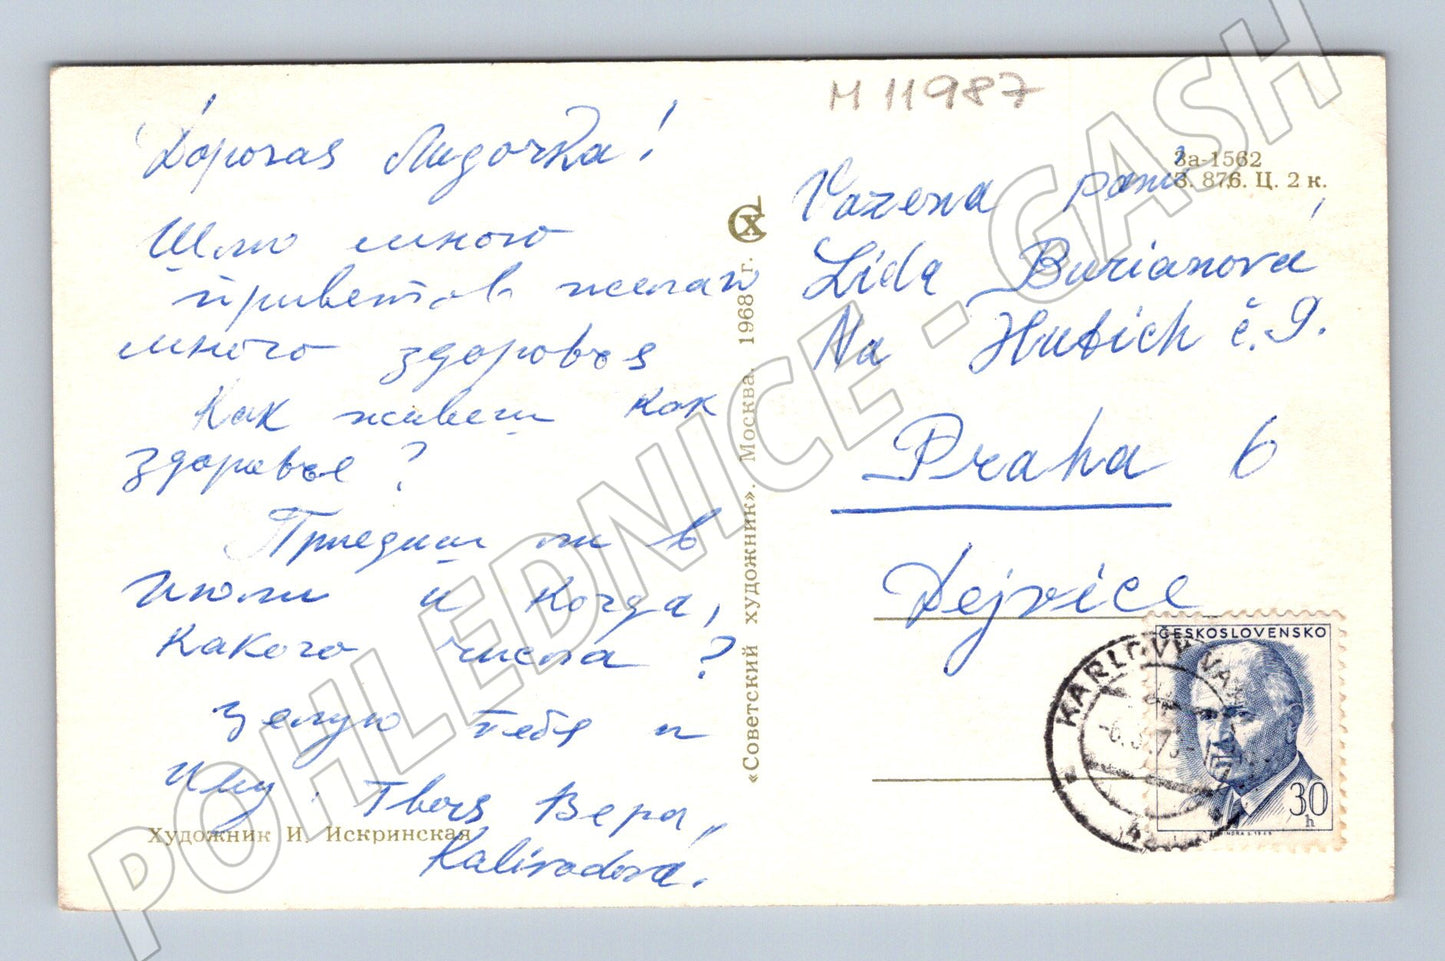 М 11987
Дорогая Лидочка!
Шлю много
приветов желаю
много здоровья
Как живеш как
здоровье?
Приедиш ли в
июли и когда,
какого числа?
Целую тебя и
Твоя Вера,
Kalivodová.
Художник И. Искринская
«Советский художник». Москва. 1968 г.
СХ
За-1562
З. 876. Ц. 2 к.
Vazena paní
Lída Burianová
Na Hutích č. 9.
Praha 6
Dejvice
ČESKOSLOVENSKO
30 h
KARLOVY VARY
POHLEDNICE - GASH